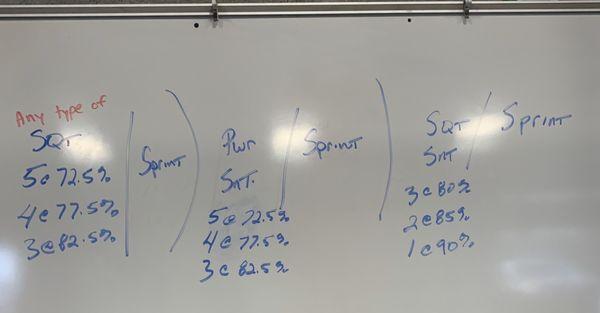 Any type of
SQT
5@72.5%
4@77.5%
3@82.5%
Sprint
Pwr
SnT.
5@72.5%
4@77.5%
3@82.5%
Sprint
SQT
SnT
3@80%
2@85%
1@90%
Sprint